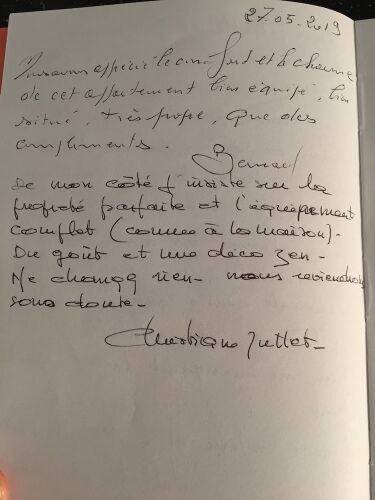 27.05.2019
Nous avons apprécié le confort et le charme
de cet appartement bien équipé, bien
situé, très propre, que des
compliments.
Bernard
De mon côté j'insiste sur la
propreté parfaite et l'équipement
complet (comme à la maison).
Du goût et une déco zen.
Ne changez rien. nous reviendrons
sans doute.
Christiane